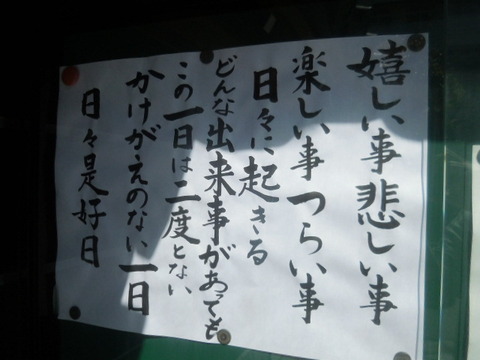 嬉しい事悲しい事
楽しい事つらい事
日々に起きる
どんな出来事があっても
この一日は二度とない
かけがえのない一日
日々是好日